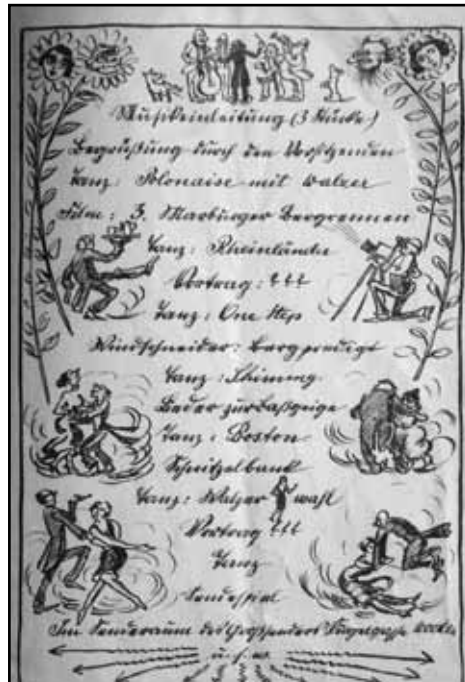 Musikeinleitung (3 Stücke)
Begrüßung durch den Vorsitzenden
Tanz: Polonaise mit Walzer
Film: 3. Marburger Bergrennen
Tanz: Rheinländer
Vortrag: ? ? ?
Tanz: One Step
Windschneider: Bergpredigt
Tanz: Shimmy
Lieder zur Baßgeige
Tanz: Boston
Schnitzelbank
Tanz: Walzer wahl
Vortrag ? ? ?
Tanz
Sendespiel
Im Senderaum des Großsenders
u. s. w.